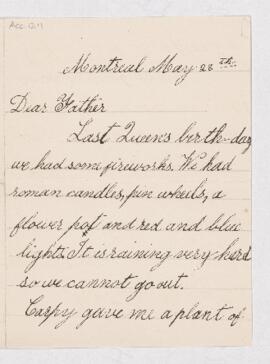 Acc. 1217
Montreal May 28th
Dear Father
Last Queen's berth-day
we had some fireworks. We had
roman candles, pin wheels, a
flower pot and red and blue
lights. It is raining very hard
so we cannot go out.
gave me a plant of